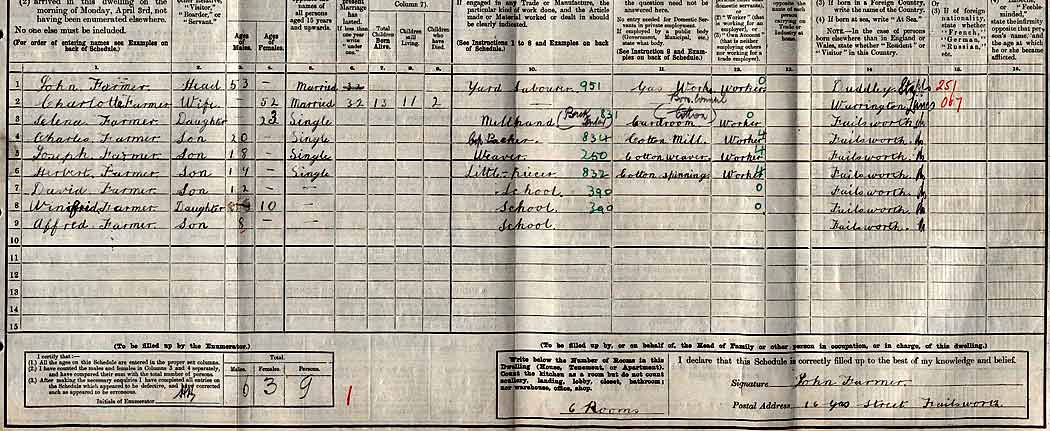 (2) arrived in this dwelling on the
morning of Monday, April 3rd, not
having been enumerated elsewhere.
No one else must be included.
(For order of entering names see Examples on
back of Schedule.)
"Visitor,"
"Boarder," or
"Servant."
Ages
of
Males.
Ages
of
Females.
names of
all persons
aged 15 years
and upwards.
present
Marriage
has
lasted.
If less than
one year
write
"under
one."
Column 7).
Total
Children
Born
Alive.
Children
still
Living.
Children
who
have
Died.
If engaged in any Trade or Manufacture, the
particular kind of work done, and the Article
made or Material worked or dealt in should
be clearly indicated.
(See Instructions 1 to 8 and Examples on back
of Schedule.)
the question need not be
answered here.
No entry needed for Domestic Ser-
vants in private employment.
If employed by a public body
(Government, Municipal, etc.)
state what body.
(See Instruction 9 and Exam-
ples on back of Schedule.)
(3) If born in a Foreign Country,
write the name of the Country.
(4) If born at sea, write "At Sea."
NOTE.—In the case of persons
born elsewhere than in England or
Wales, state whether "Resident" or
"Visitor" in this Country.
(3) If of foreign
nationality,
state whether
"French,"
"German,"
"Russian,"
etc.
1. 2. 3. 4. 5. 6. 7. 8. 9. 10. 11. 12. 13. 14. 15. 16.
1 John Farmer Head 53 — Married Yard Labourer 951 Gas Works Worker 0 Dudley Staffs 251
2 Charlotte Farmer Wife — 52 Married 32 13 11 2 — Warrington 067
3 Selena Farmer Daughter 23 Single Millhand Cardroom Cotton Worker Failsworth
4 Charles Farmer Son 20 Single Cop Packer 834 Cotton Mill Worker 4 Failsworth
5 Joseph Farmer Son 18 — Single Weaver 250 Cotton weaver Worker 4 Failsworth
6 Herbert Farmer Son 14 — Single Little-piecer 832 Cotton spinning Worker 4 Failsworth
7 David Farmer Son 12 — — School 390 0 Failsworth
8 Winifrid Farmer Daughter 10 — School 390 0 Failsworth
9 Alfred Farmer Son 8 School Failsworth
10
11
12
13
14
15
(To be filled up by the Enumerator.)
I certify that:—
(1.) All the ages on this Schedule are entered in the proper sex columns.
(2.) I have counted the males and females in Columns 3 and 4 separately,
and have compared their sum with the total number of persons.
(3.) After making the necessary enquiries I have completed all entries on
the Schedule which appeared to be defective, and have corrected
such as appeared to be erroneous.
Initials of Enumerator
Total.
Males. Females. Persons.
6 3 9
1
(To be filled up by, or on behalf of, the Head of Family or other person in occupation, or in charge, of this dwelling.)
Write below the Number of Rooms in this
Dwelling (House, Tenement, or Apartment).
Count the kitchen as a room but do not count
scullery, landing, lobby, closet, bathroom;
nor warehouse, office, shop.
6 Rooms
I declare that this Schedule is correctly filled up to the best of my knowledge and belief.
Signature John Farmer
Postal Address 16 Gas Street Failsworth